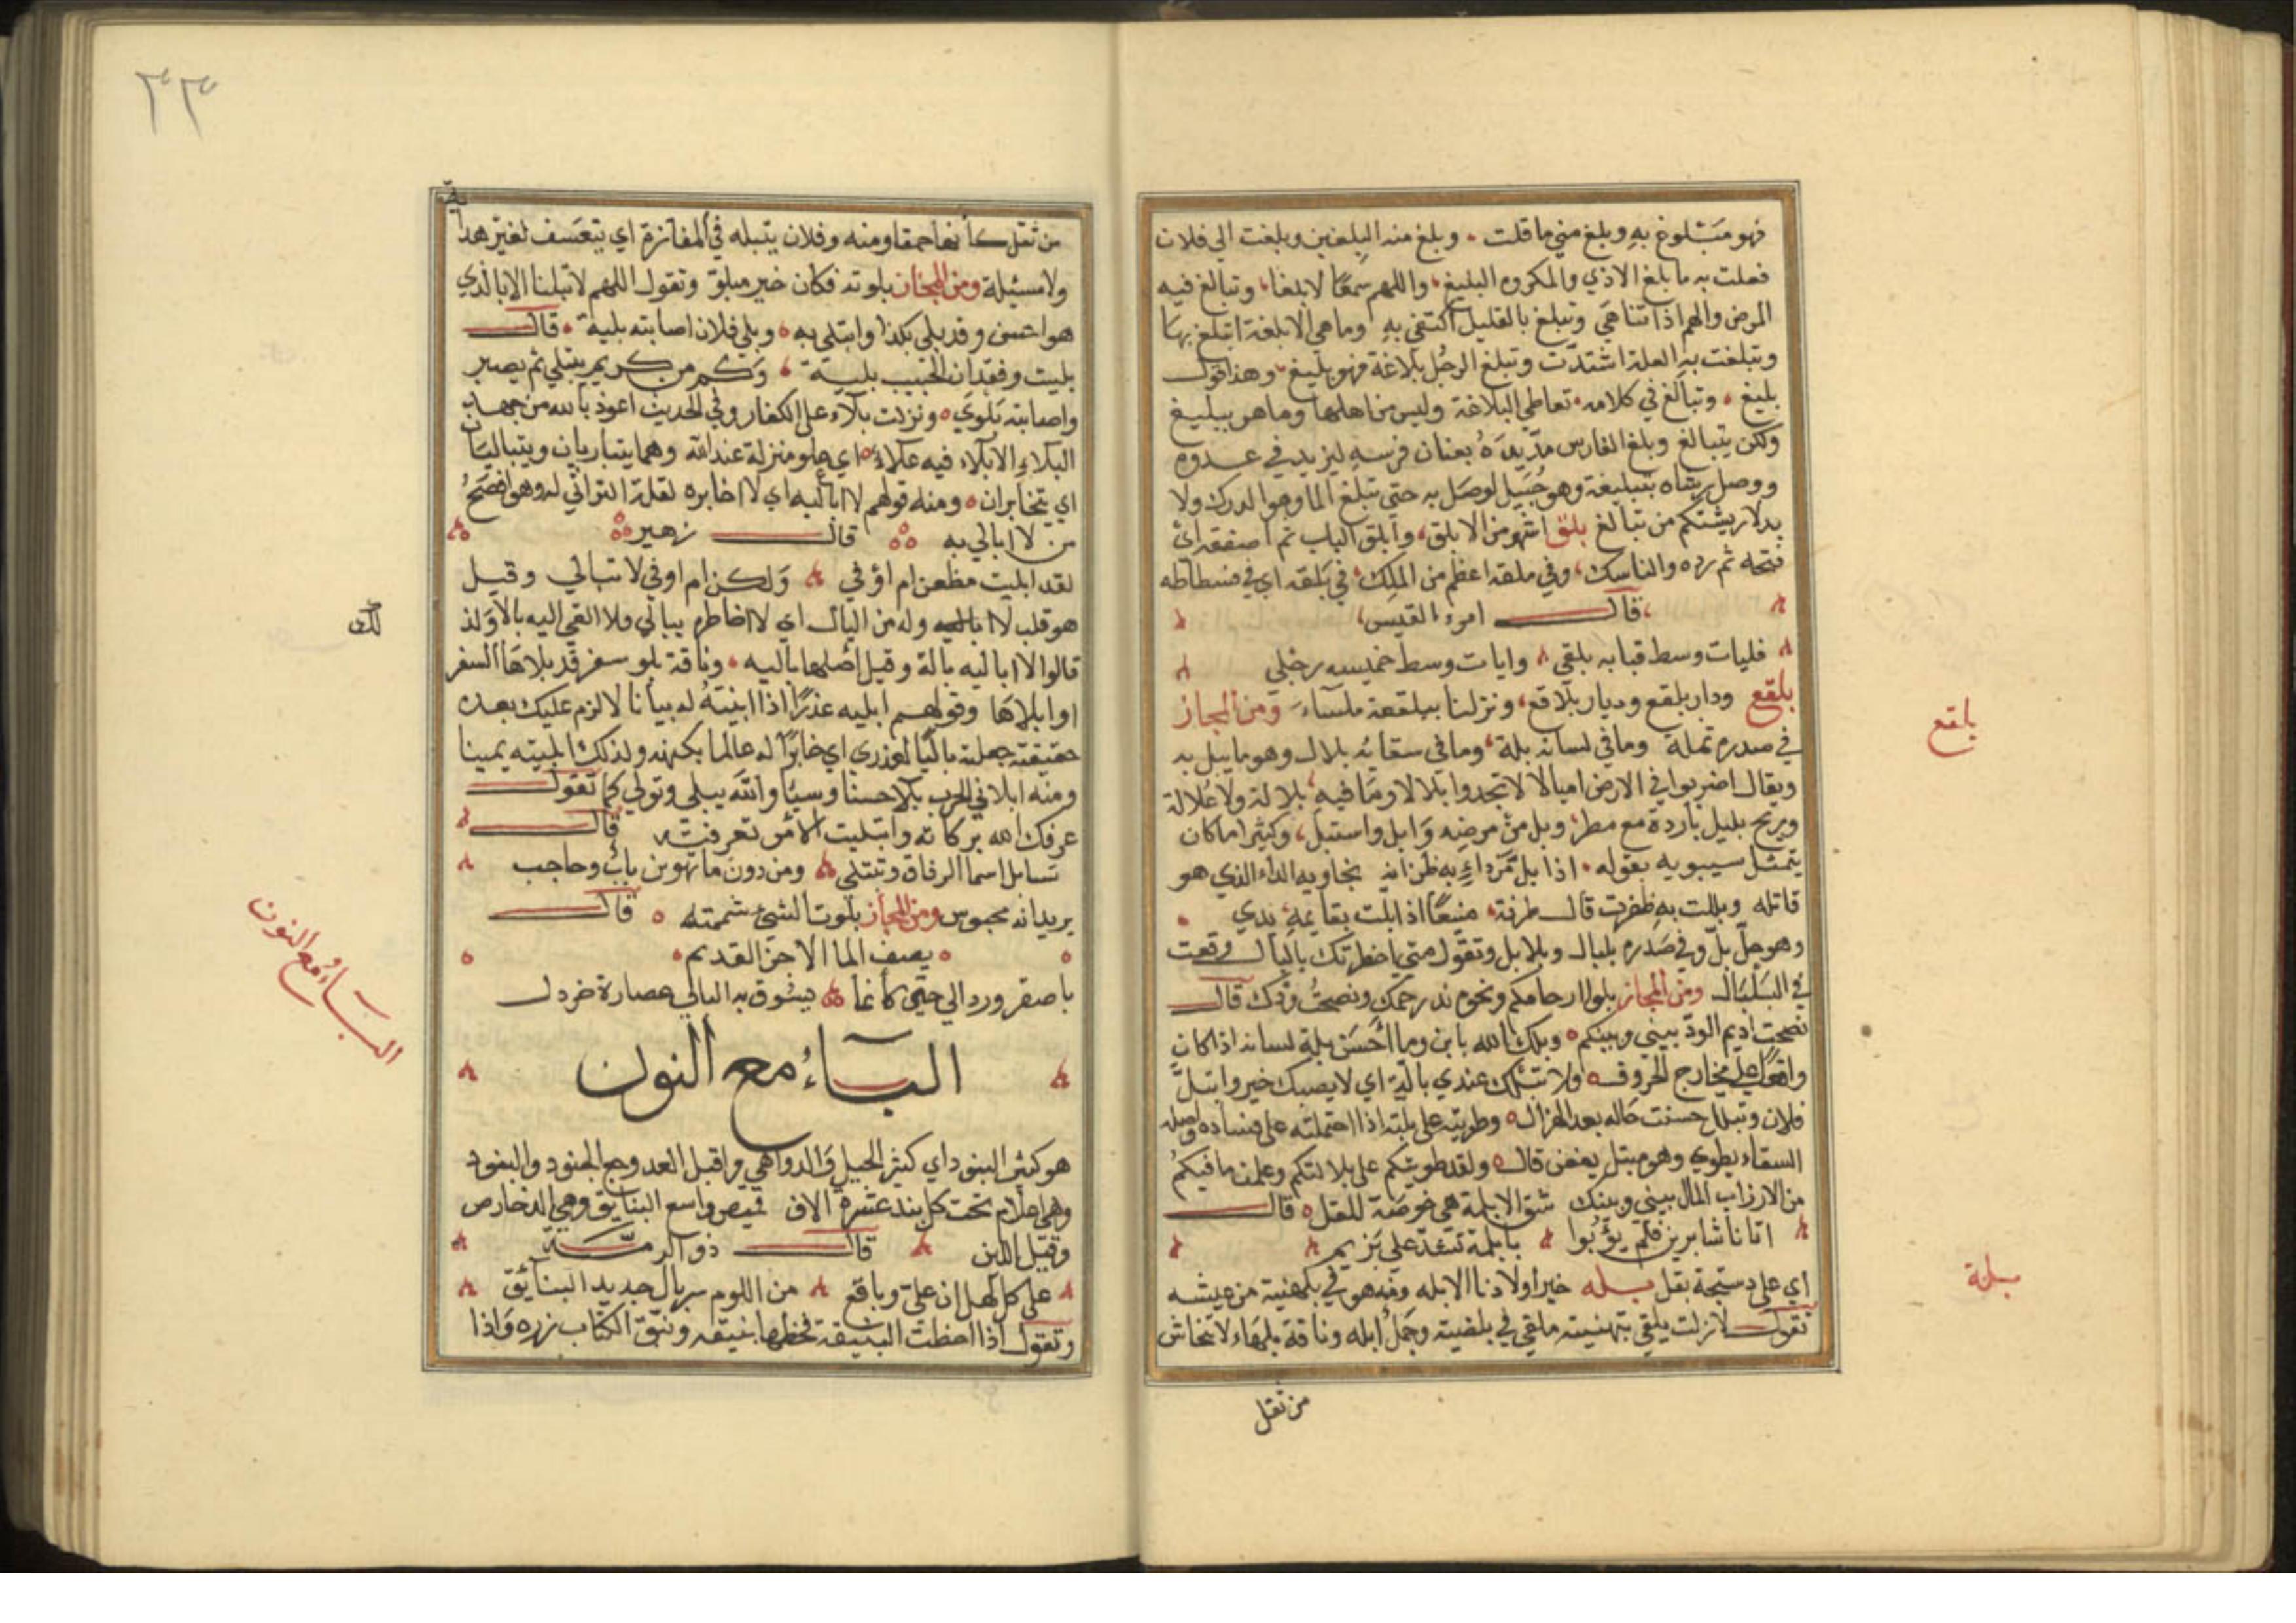 فهو مبلوغ به وبلغ مني ما قلت وبلغ منه البلغين وبلغت الي فلان
فعلت به ما بلغ الاذي والمكروه البليغ واللهم سمعًا لا بلغا وتبالغ فيه
المرض والهم اذا تناهي وتبلغ بالقليل اكتفي به وما هي الا بلغة اتبلغ بها
وتبلغت به العلة اشتدّت وتبلغ الرجُل بلاغة فهو بليغ وهذا قول
بليغ وتبالغ في كلامه تعاطي البلاغة وليس من اهلها وما هو ببليغ
ولكن يتبالغ وبلغ الفارس مدّ يدَهُ بعنان فرسه ليزيد في عدوه
ووصل رشاه بتبليغة وهو حُبَيل يوصَل به حتي يبلغ الما وهو الدرك ولا
بد لارشيتكم من تبالغ بلق اشهر من الابلق وابلق الباب ثم اصفقه اي
فتحه ثم رده والناسك في ملقه اعظم من الملك في بَلقه اي في فسطاطه
قال امرء القيس
فليات وسط قبابه بلقي وايات وسط خميسه رجلي
بلقع ودار بلقع وديار بلاقع ونزلنا ببلقعة ملساءَ ومن المجاز
في صدره ثملة وما في لسانه بلة وما في سقائه بلال وهو ما يبل به
ويقال اضربوا في الارض اميالا لا تجدوا بلالا وما فيه بلالة ولا علالة
وريح بليل باردة مع مطر وبل من مرضه وَابل واستبل وكثيرا ما كان
يتمثل سيبويه بقوله اذا بل من داءٍ به ظن انه نجا وبه الداء الذي هو
قاتله وبللت به ظفرت قال طرفة منيعًا اذا بلت بقايمهِ يدي
وهو حِلّ بلّ وفي صَدره بلبال وبلابل وتقول متي اخطرتك بالبال وقعت
في البَلبَال ومن المجاز بلوا ارحامكم ونحوه ند رحمك ونصحتُ ودك قال
نضحت اديم الودّ بيني وبينكم وبلك الله بابن وما احسَن بلة لسانه اذا كان
واقعًا علي مخارج الحروف ولا تبلك عندي بالّة اي لا يصيبك خير وابتلّ
فلان وتبلل حسنت حاله بعد الهزال وطويته علي بلته اذا احتملته علي فساده واصله
السقاء يطوي وهو مبتل يعفن قال ولقد طويتكم علي بلالتكم وعلمت ما فيكمُ
من الاذراب المال بيني وبينك شق الابلمة هي خوصة للمقل قال
اتانا شابرين فلم يؤبوا بابلمة تشد علي بزيم
اي علي دستجة بقل بله خير اولادنا الابله وفيه هو في بلهنية من عيشه
تقول لا زلت يلقي بتهنية ملقي في بلهنية وجَمل ابله وناقة بلهاء لا تنحاش
من ثقل
بلقع
بلة
٣٣
من ثقل كأنها حمقا ومنه وفلان يتبله في المفازة اي يتعسف لغير هداية
ولا مسئلة ومن المجاز بلوته فكان خير مبلوّ وتقول اللهم لا تبلنا الا بالذي
هو احسن وقد بلي بكذا وابتلي به وبلي فلان اصابته بلية قال
بليت وفقدان الحبيب بلية وكم من كريم يبتلي ثم يصبر
واصابته بَلوَي ونزلت بلاء علي الكفار وفي الحديث اعوذ بالله من جهد
البلاءِ الا بلاء فيه علاء اي علو منزلة عند الله وهما يتباريان ويتباليان
اي يتخابران ومنه قولهم لا اباليه اي لا اخابره لقلة اكتراثي له وهو افصَحُ
من لا ابالي به قال زهير
لقد باليت مظعن ام اوفي وَلكن ام اوفي لا تبالي وقيل
هو قلب لا اباليه وله من البال اي لا اخاطره ببالي ولا القي اليه بالا وَلذ
قالوا لا اباليه بالة وقيل اصلها بالية وناقة بلو سفر قد بلاهَا السفر
او ابلاهَا وقولهم ابليه عذرًا اذا ابنيتهُ له بيانا لا لوم عليك بعده
حقيقته جعلته باليًا لعذري اي خابرًا له عالما بكنهه ولذلك ابليته يمينا
ومنه ابلا في الحرب بلاء حسنا وسيئا والله يبلي ويولي كما تقول
عرفك الله بركاته وابتليت الامر تعرفته قال
تسايل اسما الرفاق وتبتلي ومن دون ما تهوين باب وحاجب
يريد انه محبوس ومن المجاز بلوت الشيء شممته قال
يصف الما الاجن القديم
باصفر ورد الي حتي كأنما يسوق به البالي عصارة خردل
البَآءُ مع النون
هو كثير البنود اي كثير الحيل وَالدواهي واقبل العدو وجح الجنود والبنود
وهي اعلام تحت كل بند عشرة الاف قميص واسع البنايق وهي الدخارص
وقيل اللبن قال ذو الرمّة
علي كل كهل ان علي ويافع من اللوم سربال جديد البنائق
وتقول اذا احطت البنيقة فحطها بنيقه وبنّق الكتاب زره وَاذا
لك
البَاءُ مع النون